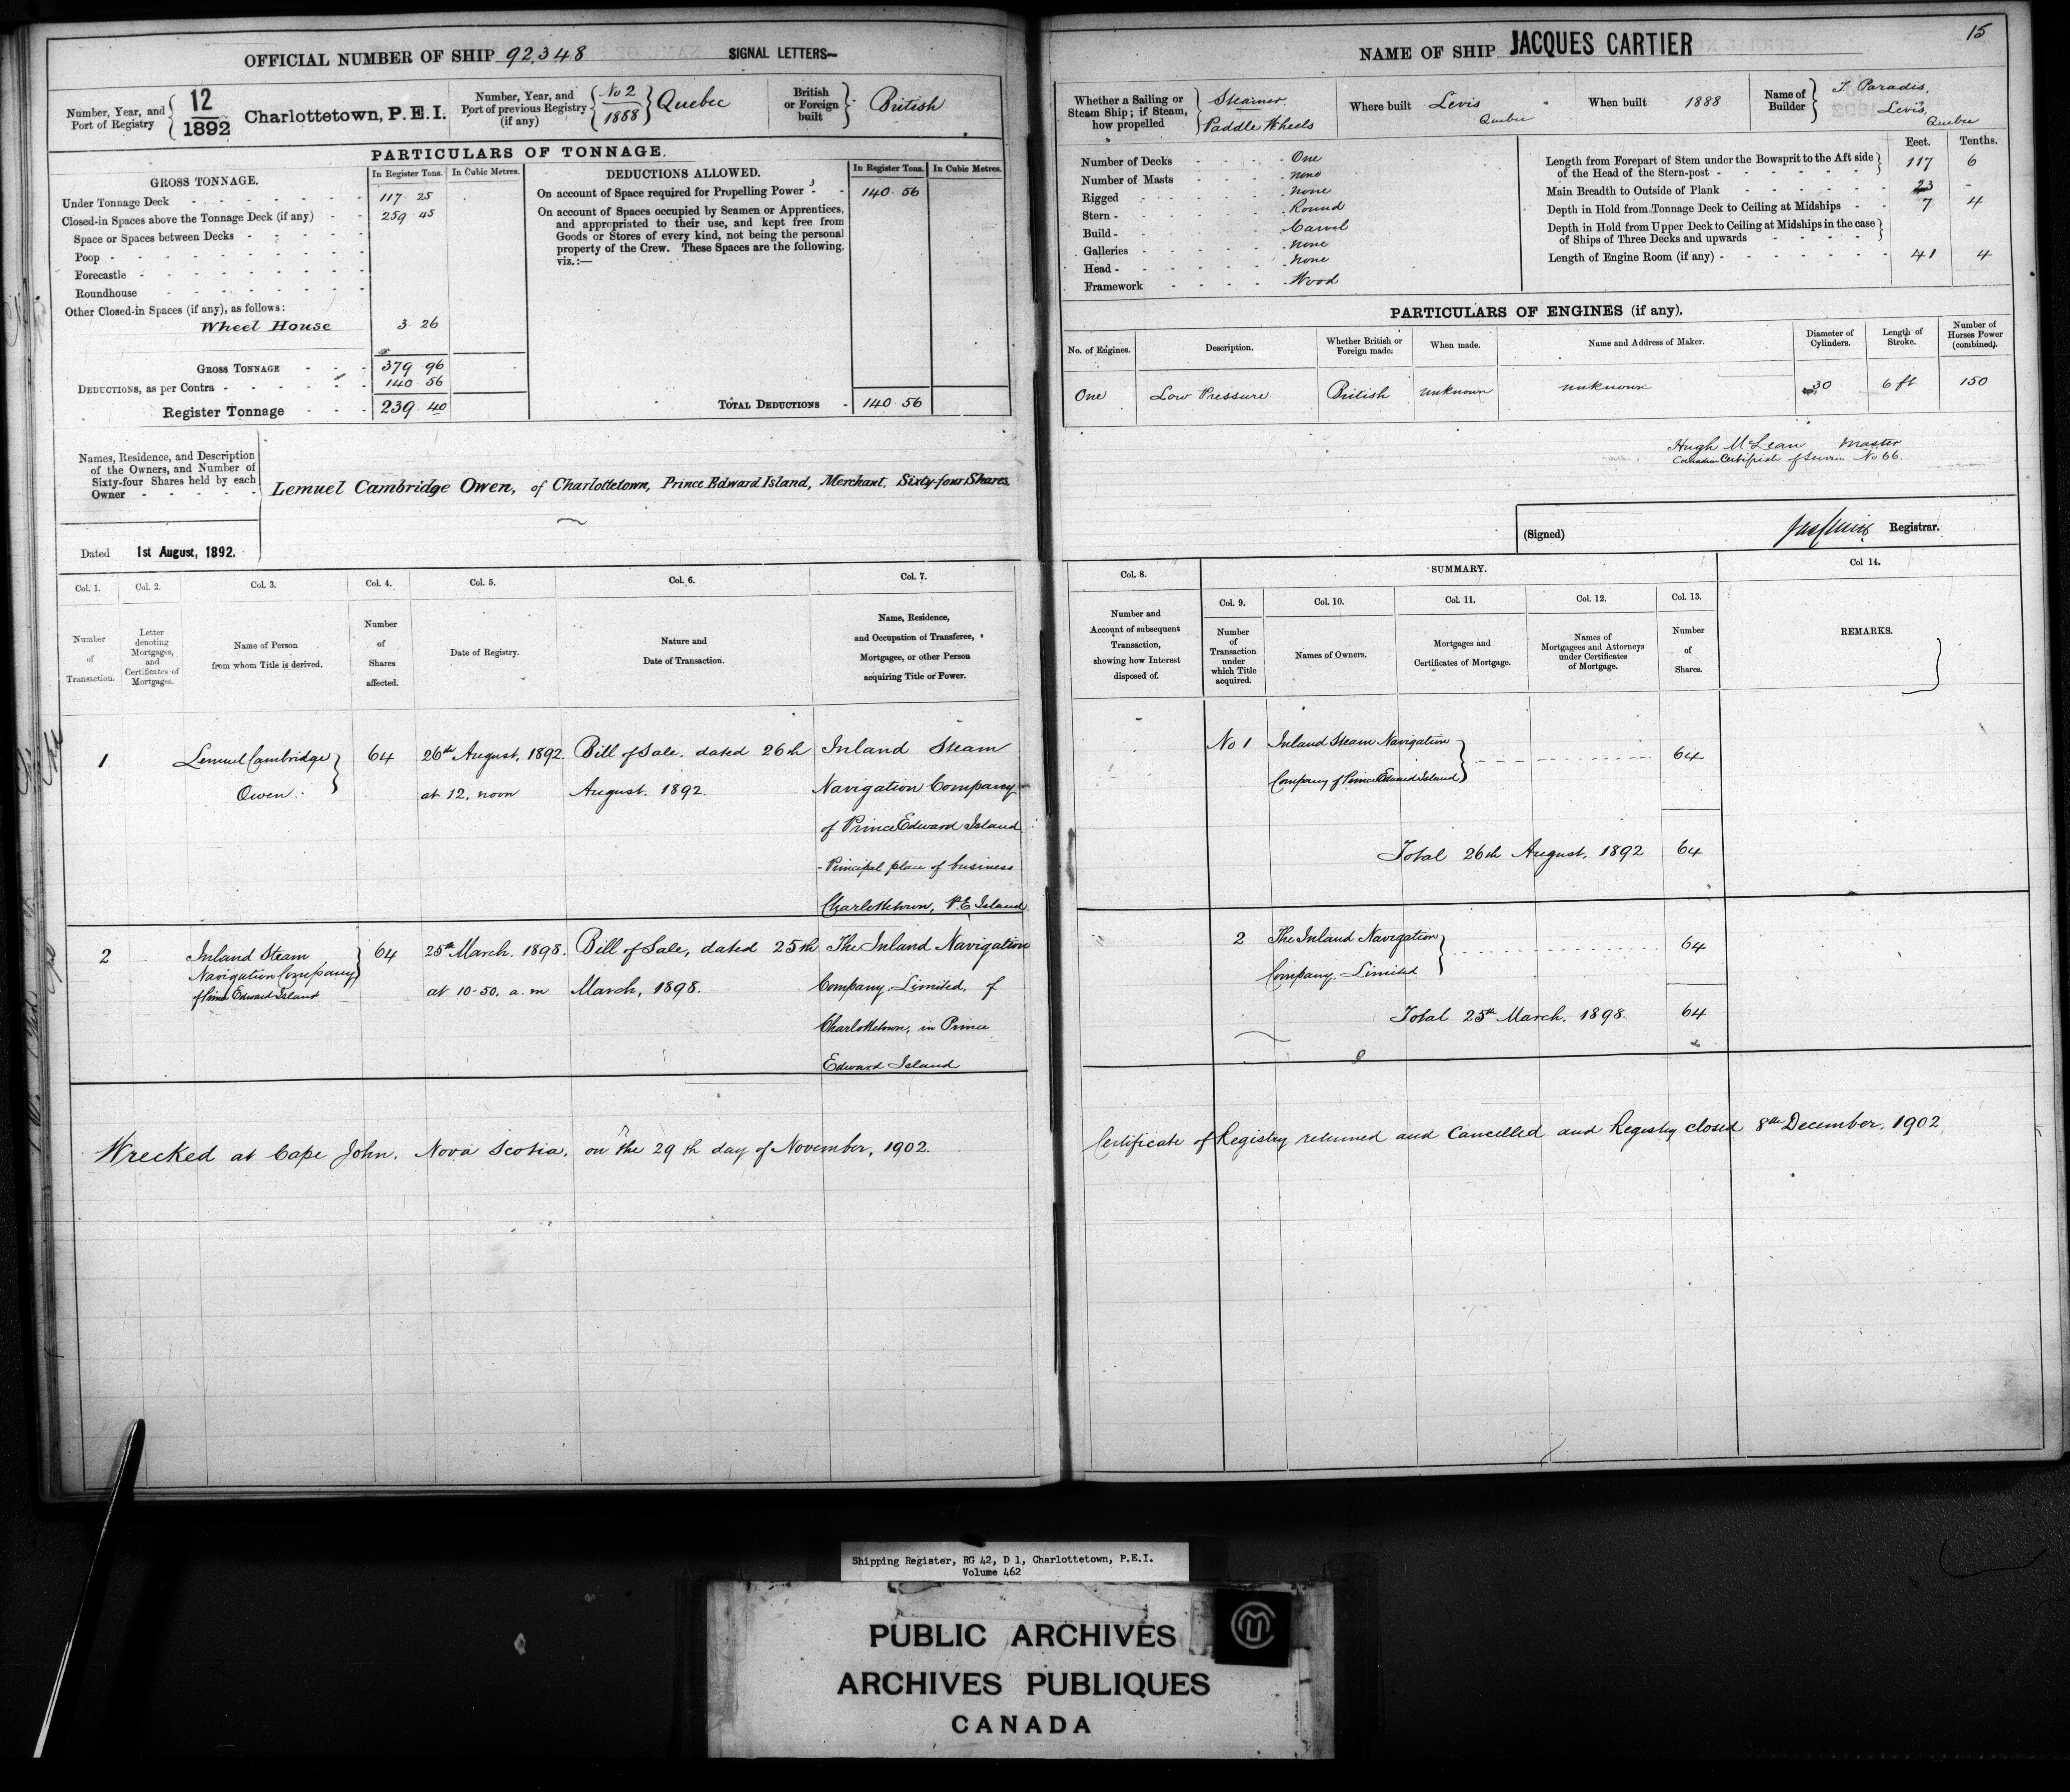 OFFICIAL NUMBER OF SHIP 92,348 SIGNAL LETTERS—
Number, Year, and Port of Registry { 12 / 1892 Charlottetown, P.E.I.
Number, Year, and Port of previous Registry (if any) { No 2 / 1888 } Quebec
British or Foreign built } British
PARTICULARS OF TONNAGE.
GROSS TONNAGE. In Register Tons. In Cubic Metres.
Under Tonnage Deck 117 25
Closed-in Spaces above the Tonnage Deck (if any) 259 45
Space or Spaces between Decks
Poop
Forecastle
Roundhouse
Other Closed-in Spaces (if any), as follows:
Wheel House 3 26
GROSS TONNAGE 379 96
DEDUCTIONS, as per Contra 140 56
Register Tonnage 239 40
DEDUCTIONS ALLOWED. In Register Tons. In Cubic Metres.
On account of Space required for Propelling Power 140 56
On account of Spaces occupied by Seamen or Apprentices,
and appropriated to their use, and kept free from
Goods or Stores of every kind, not being the personal
property of the Crew. These Spaces are the following,
viz.:—
TOTAL DEDUCTIONS 140 56
Names, Residence, and Description
of the Owners, and Number of
Sixty-four Shares held by each
Owner
Lemuel Cambridge Owen, of Charlottetown, Prince Edward Island, Merchant. Sixty-four Shares.
Dated 1st August, 1892.
Col. 1. Col. 2. Col. 3. Col. 4. Col. 5. Col. 6. Col. 7.
Number of Transaction.
Letter denoting Mortgages, and Certificates of Mortgages.
Name of Person from whom Title is derived.
Number of Shares affected.
Date of Registry.
Nature and Date of Transaction.
Name, Residence, and Occupation of Transferee, Mortgagee, or other Person acquiring Title or Power.
1 Lemuel Cambridge 64 26th August, 1892. Bill of Sale. dated 26th Inland Steam
Owen at 12, noon August. 1892. Navigation Company
of Prince Edward Island
- Principal place of business
Charlottetown, P.E Island
2 Inland Steam 64 25th March. 1898. Bill of Sale, dated 25th The Inland Navigation
Navigation Company
of Prince Edward Island at 10-50, a.m March, 1898. Company. Limited, of
Charlottetown, in Prince
Edward Island
Wrecked at Cape John. Nova Scotia, on the 29th day of November, 1902.
NAME OF SHIP JACQUES CARTIER 15
Whether a Sailing or Steam Ship; if Steam, how propelled } Steamer. Paddle Wheels
Where built Levis Quebec
When built 1888
Name of Builder } Paradis, Levis, Quebec
Number of Decks One
Number of Masts none
Rigged none
Stern Round
Build Carvel
Galleries none
Head none
Framework Wood
Feet. Tenths.
Length from Forepart of Stem under the Bowsprit to the Aft side of the Head of the Stern-post 117 6
Main Breadth to Outside of Plank 23 -
Depth in Hold from Tonnage Deck to Ceiling at Midships 7 4
Depth in Hold from Upper Deck to Ceiling at Midships in the case of Ships of Three Decks and upwards
Length of Engine Room (if any) 41 4
PARTICULARS OF ENGINES (if any).
No. of Engines. Description. Whether British or Foreign made. When made. Name and Address of Maker. Diameter of Cylinders. Length of Stroke. Number of Horses Power (combined).
One Low Pressure British unknown unknown 30 6 ft 150
Hugh McLean Master
Certificate of No 66.
(Signed) Registrar.
Col. 8. SUMMARY. Col 14.
Col. 9. Col. 10. Col. 11. Col. 12. Col. 13.
Number and Account of subsequent Transaction, showing how Interest disposed of.
Number of Transaction under which Title acquired.
Names of Owners.
Mortgages and Certificates of Mortgage.
Names of Mortgagees and Attorneys under Certificates of Mortgage.
Number of Shares.
REMARKS.
No 1 Inland Steam Navigation
Company of Prince Edward Island 64
Total 26th August, 1892 64
2 The Inland Navigation
Company. Limited 64
Total 25th March, 1898. 64
Certificate of Registry returned and Cancelled and Registry closed 8th December. 1902
Shipping Register, RG 42, D 1, Charlottetown, P.E.I.
Volume 462
PUBLIC ARCHIVES
ARCHIVES PUBLIQUES
CANADA